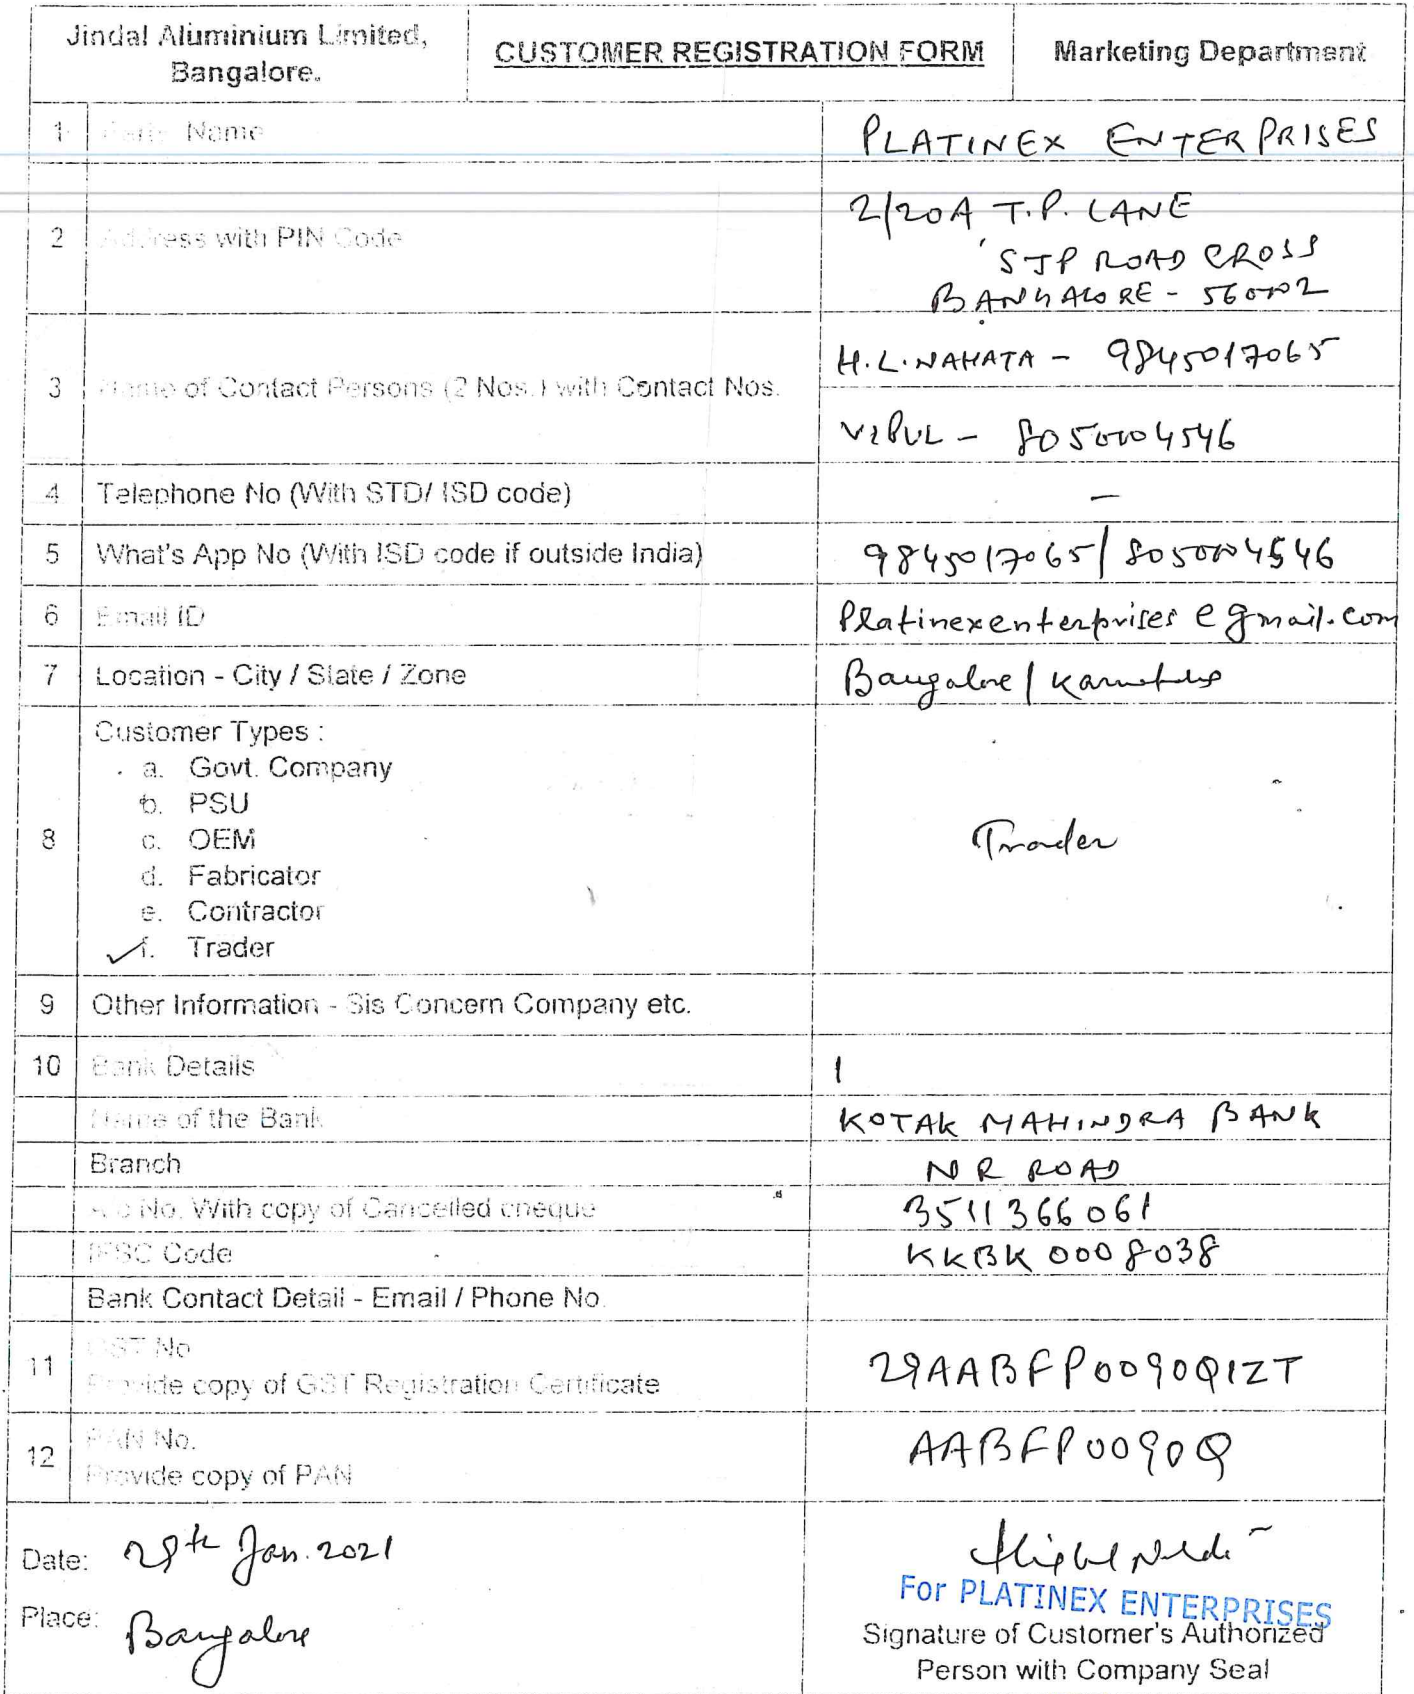 Jindal Aluminium Limited,
Bangalore.
CUSTOMER REGISTRATION FORM
Marketing Department
1 Name
PLATINEX ENTERPRISES
2 Address with PIN Code
2/20A T.P. LANE
SJP ROAD CROSS
BANGALORE - 560002
3 Name of Contact Persons (2 Nos.) with Contact Nos.
H.L. NAHATA - 9845017065
VIPUL - 8050004546
4 Telephone No (With STD/ ISD code)
—
5 What's App No (With ISD code if outside India)
9845017065/ 8050004546
6 Email ID
Platinexenterprises@gmail.com
7 Location - City / State / Zone
Bangalore / Karnataka
8 Customer Types :
a. Govt. Company
b. PSU
c. OEM
d. Fabricator
e. Contractor
✓ f. Trader
Trader
9 Other Information - Sis Concern Company etc.
10 Bank Details
1
Name of the Bank
KOTAK MAHINDRA BANK
Branch
N R ROAD
A/c No. With copy of Cancelled cheque
3511366061
IFSC Code
KKBK 0008038
Bank Contact Detail - Email / Phone No.
11 GST No
Provide copy of GST Registration Certificate
29AABFP0090Q1ZT
12 PAN No.
Provide copy of PAN
AABFP0090Q
Date: 29th Jan. 2021
Place: Bangalore
For PLATINEX ENTERPRISES
Signature of Customer's Authorized
Person with Company Seal